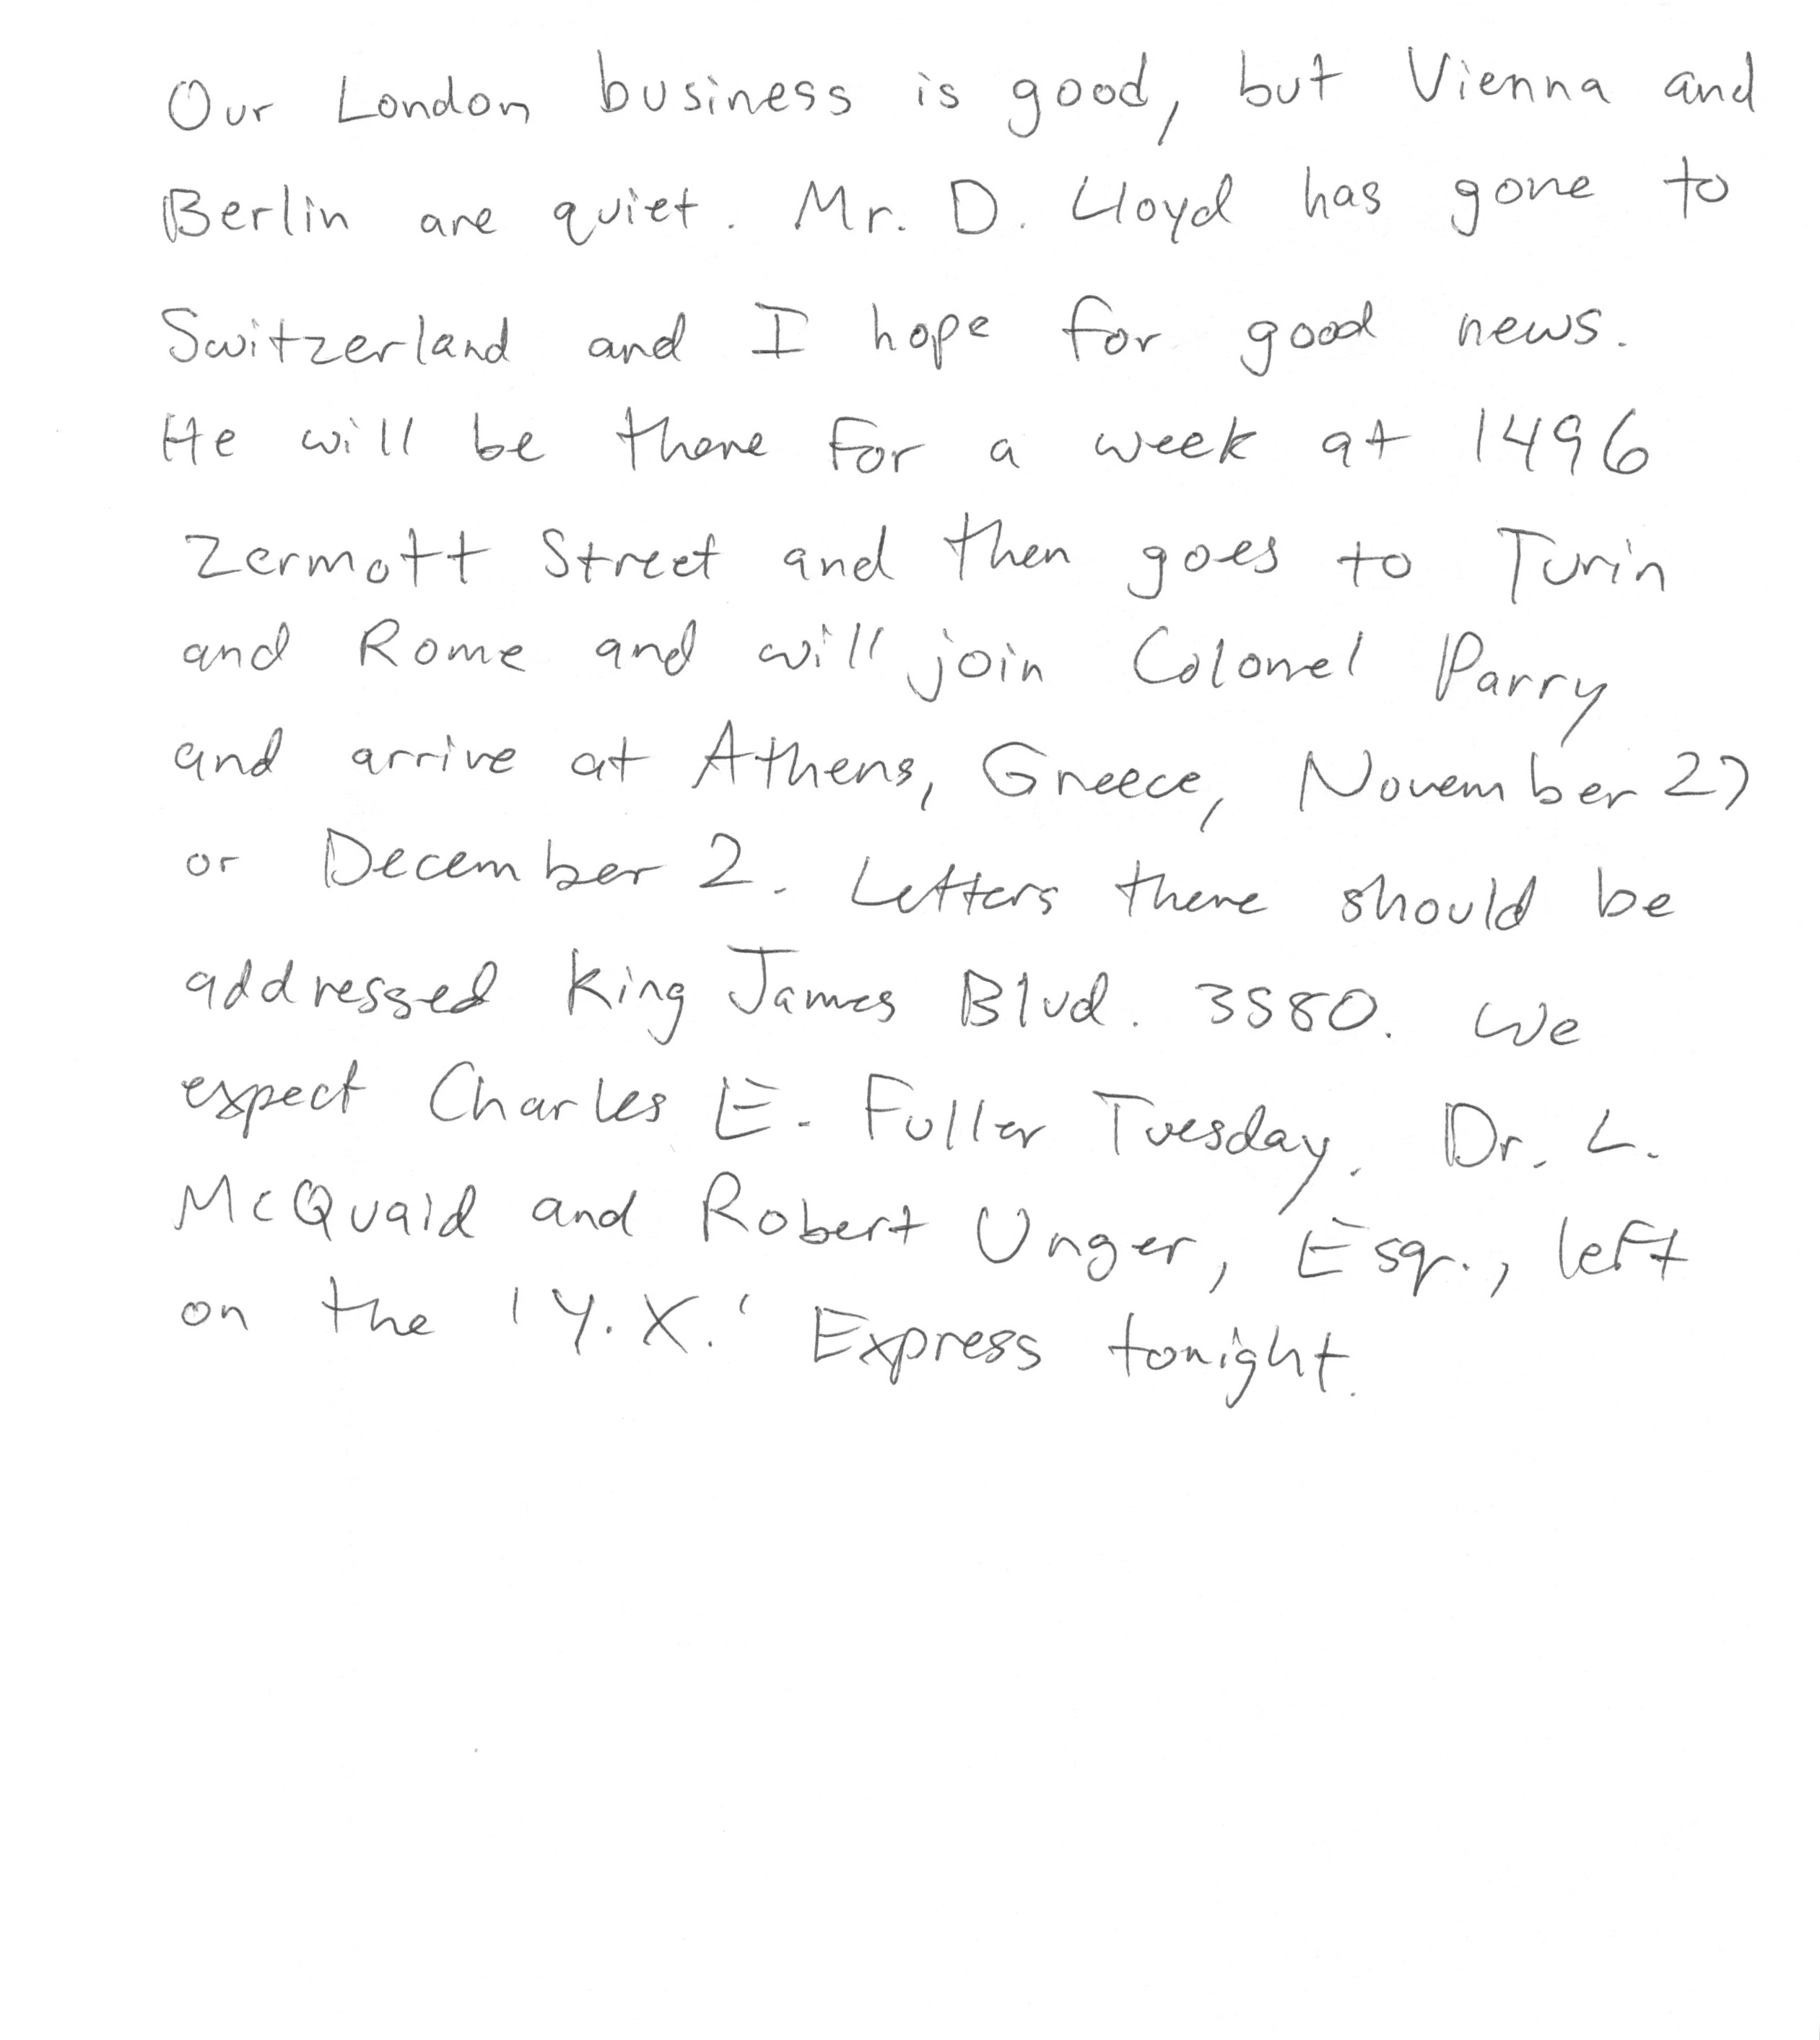 Our London business is good, but Vienna and
Berlin are quiet. Mr. D. Lloyd has gone to
Switzerland and I hope for good news.
He will be there for a week at 1496
Zermott Street and then goes to Turin
and Rome and will join Colonel Parry
and arrive at Athens, Greece, November 27
or December 2. Letters there should be
addressed King James Blvd. 3580. We
expect Charles E. Fuller Tuesday. Dr. L.
McQuaid and Robert Unger, Esq., left
on the 'Y.X.' Express tonight.